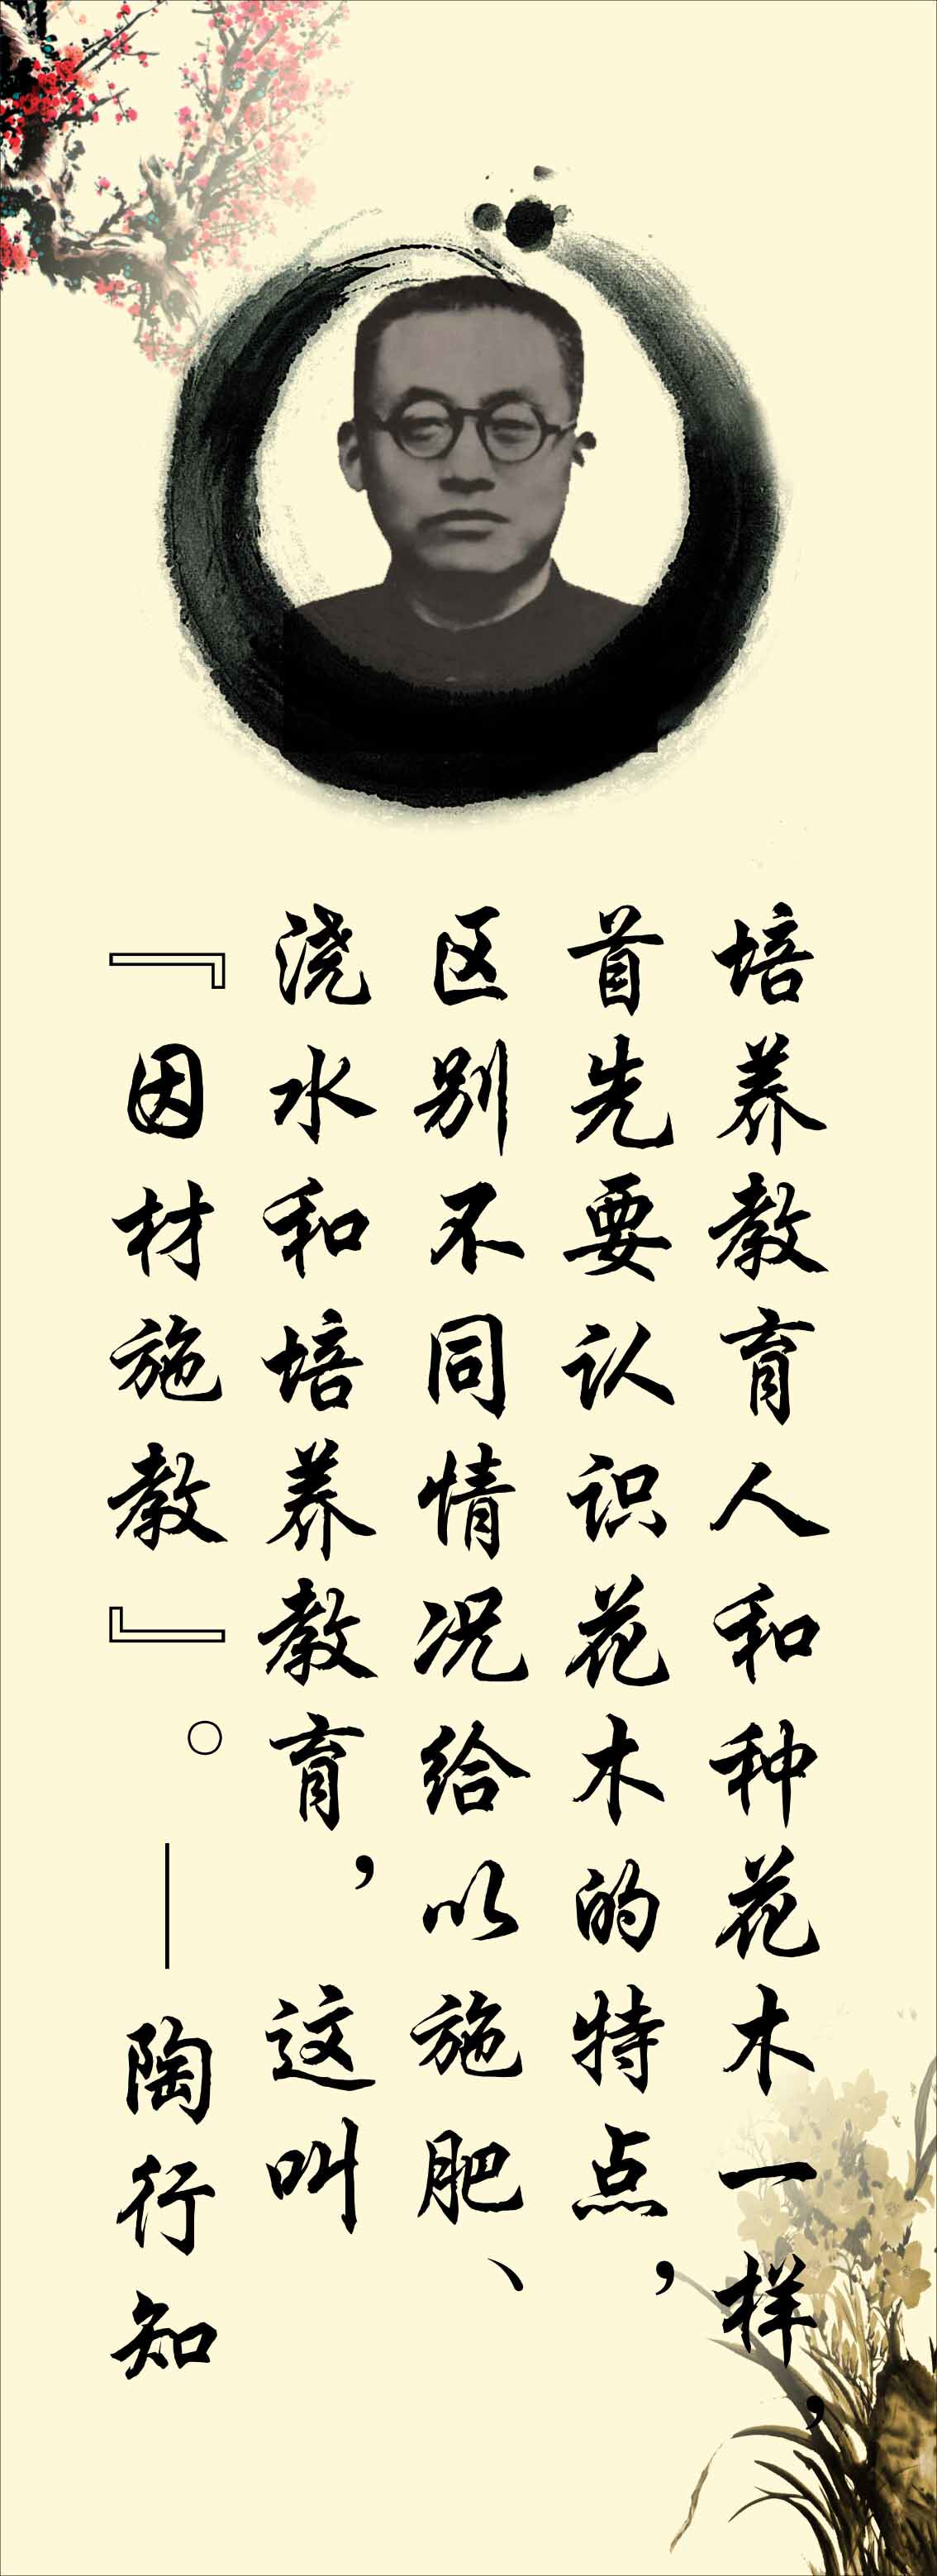 培养教育人和种花木一样，
首先要认识花木的特点，
区别不同情况给以施肥、
浇水和培养教育，这叫
『因材施教』。—陶行知